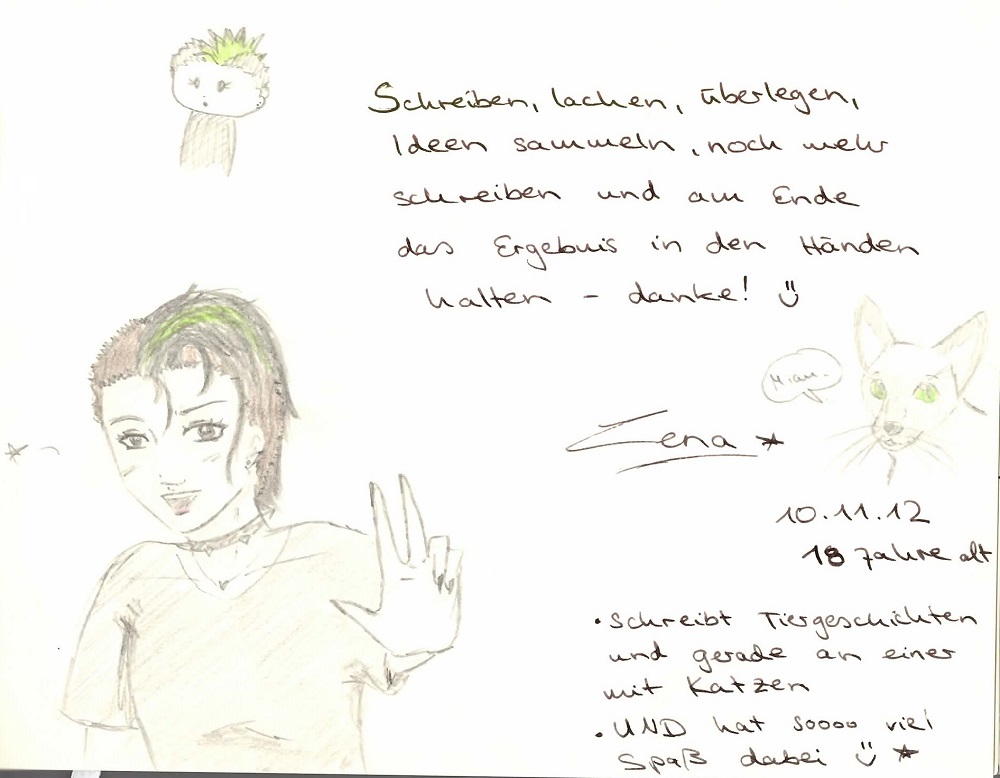 Schreiben, lachen, überlegen,
Ideen sammeln, noch mehr
schreiben und am Ende
das Ergebnis in den Händen
halten - danke! Ü
Miau.
Lena ★
10.11.12
18 Jahre alt
• Schreibt Tiergeschichten
und gerade an einer
mit Katzen
• UND hat soooo viel
Spaß dabei Ü ★